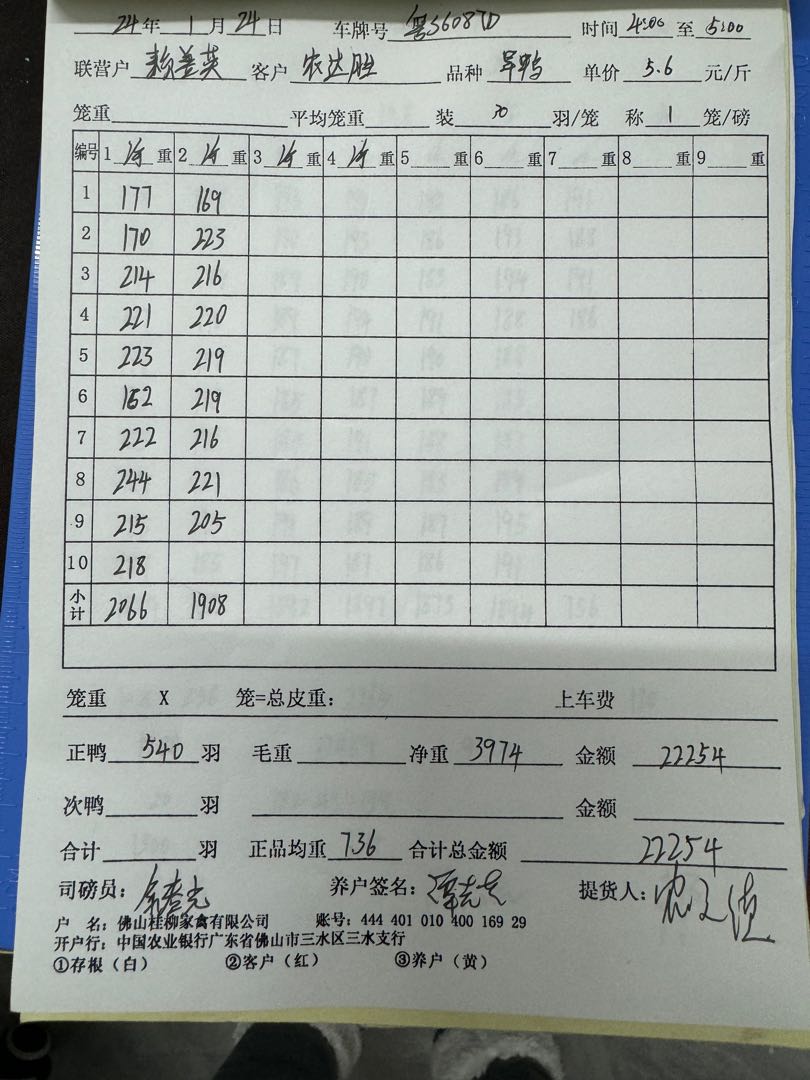 24年 1月24日 车牌号 粤S608TD 时间 4:00 至 5:00
联营户 赖善英 客户 农达胜 品种 旱鸭 单价 5.6 元/斤
笼重 平均笼重 装 30 羽/笼 称 1 笼/磅
编号 1 净 重 2 净 重 3 净 重 4 净 重 5 重 6 重 7 重 8 重 9 重
1 177 169
2 170 223
3 214 216
4 221 220
5 223 219
6 162 219
7 222 216
8 244 221
9 215 205
10 218
小计 2066 1908
笼重 X 笼=总皮重: 上车费
正鸭 540 羽 毛重 净重 3974 金额 22254
次鸭 羽 金额
合计 羽 正品均重 736 合计总金额 22254
司磅员: 养户签名: 提货人:
户 名: 佛山桂柳家禽有限公司 账号: 444 401 010 400 169 29
开户行: 中国农业银行广东省佛山市三水区三水支行
①存根(白) ②客户(红) ③养户(黄)